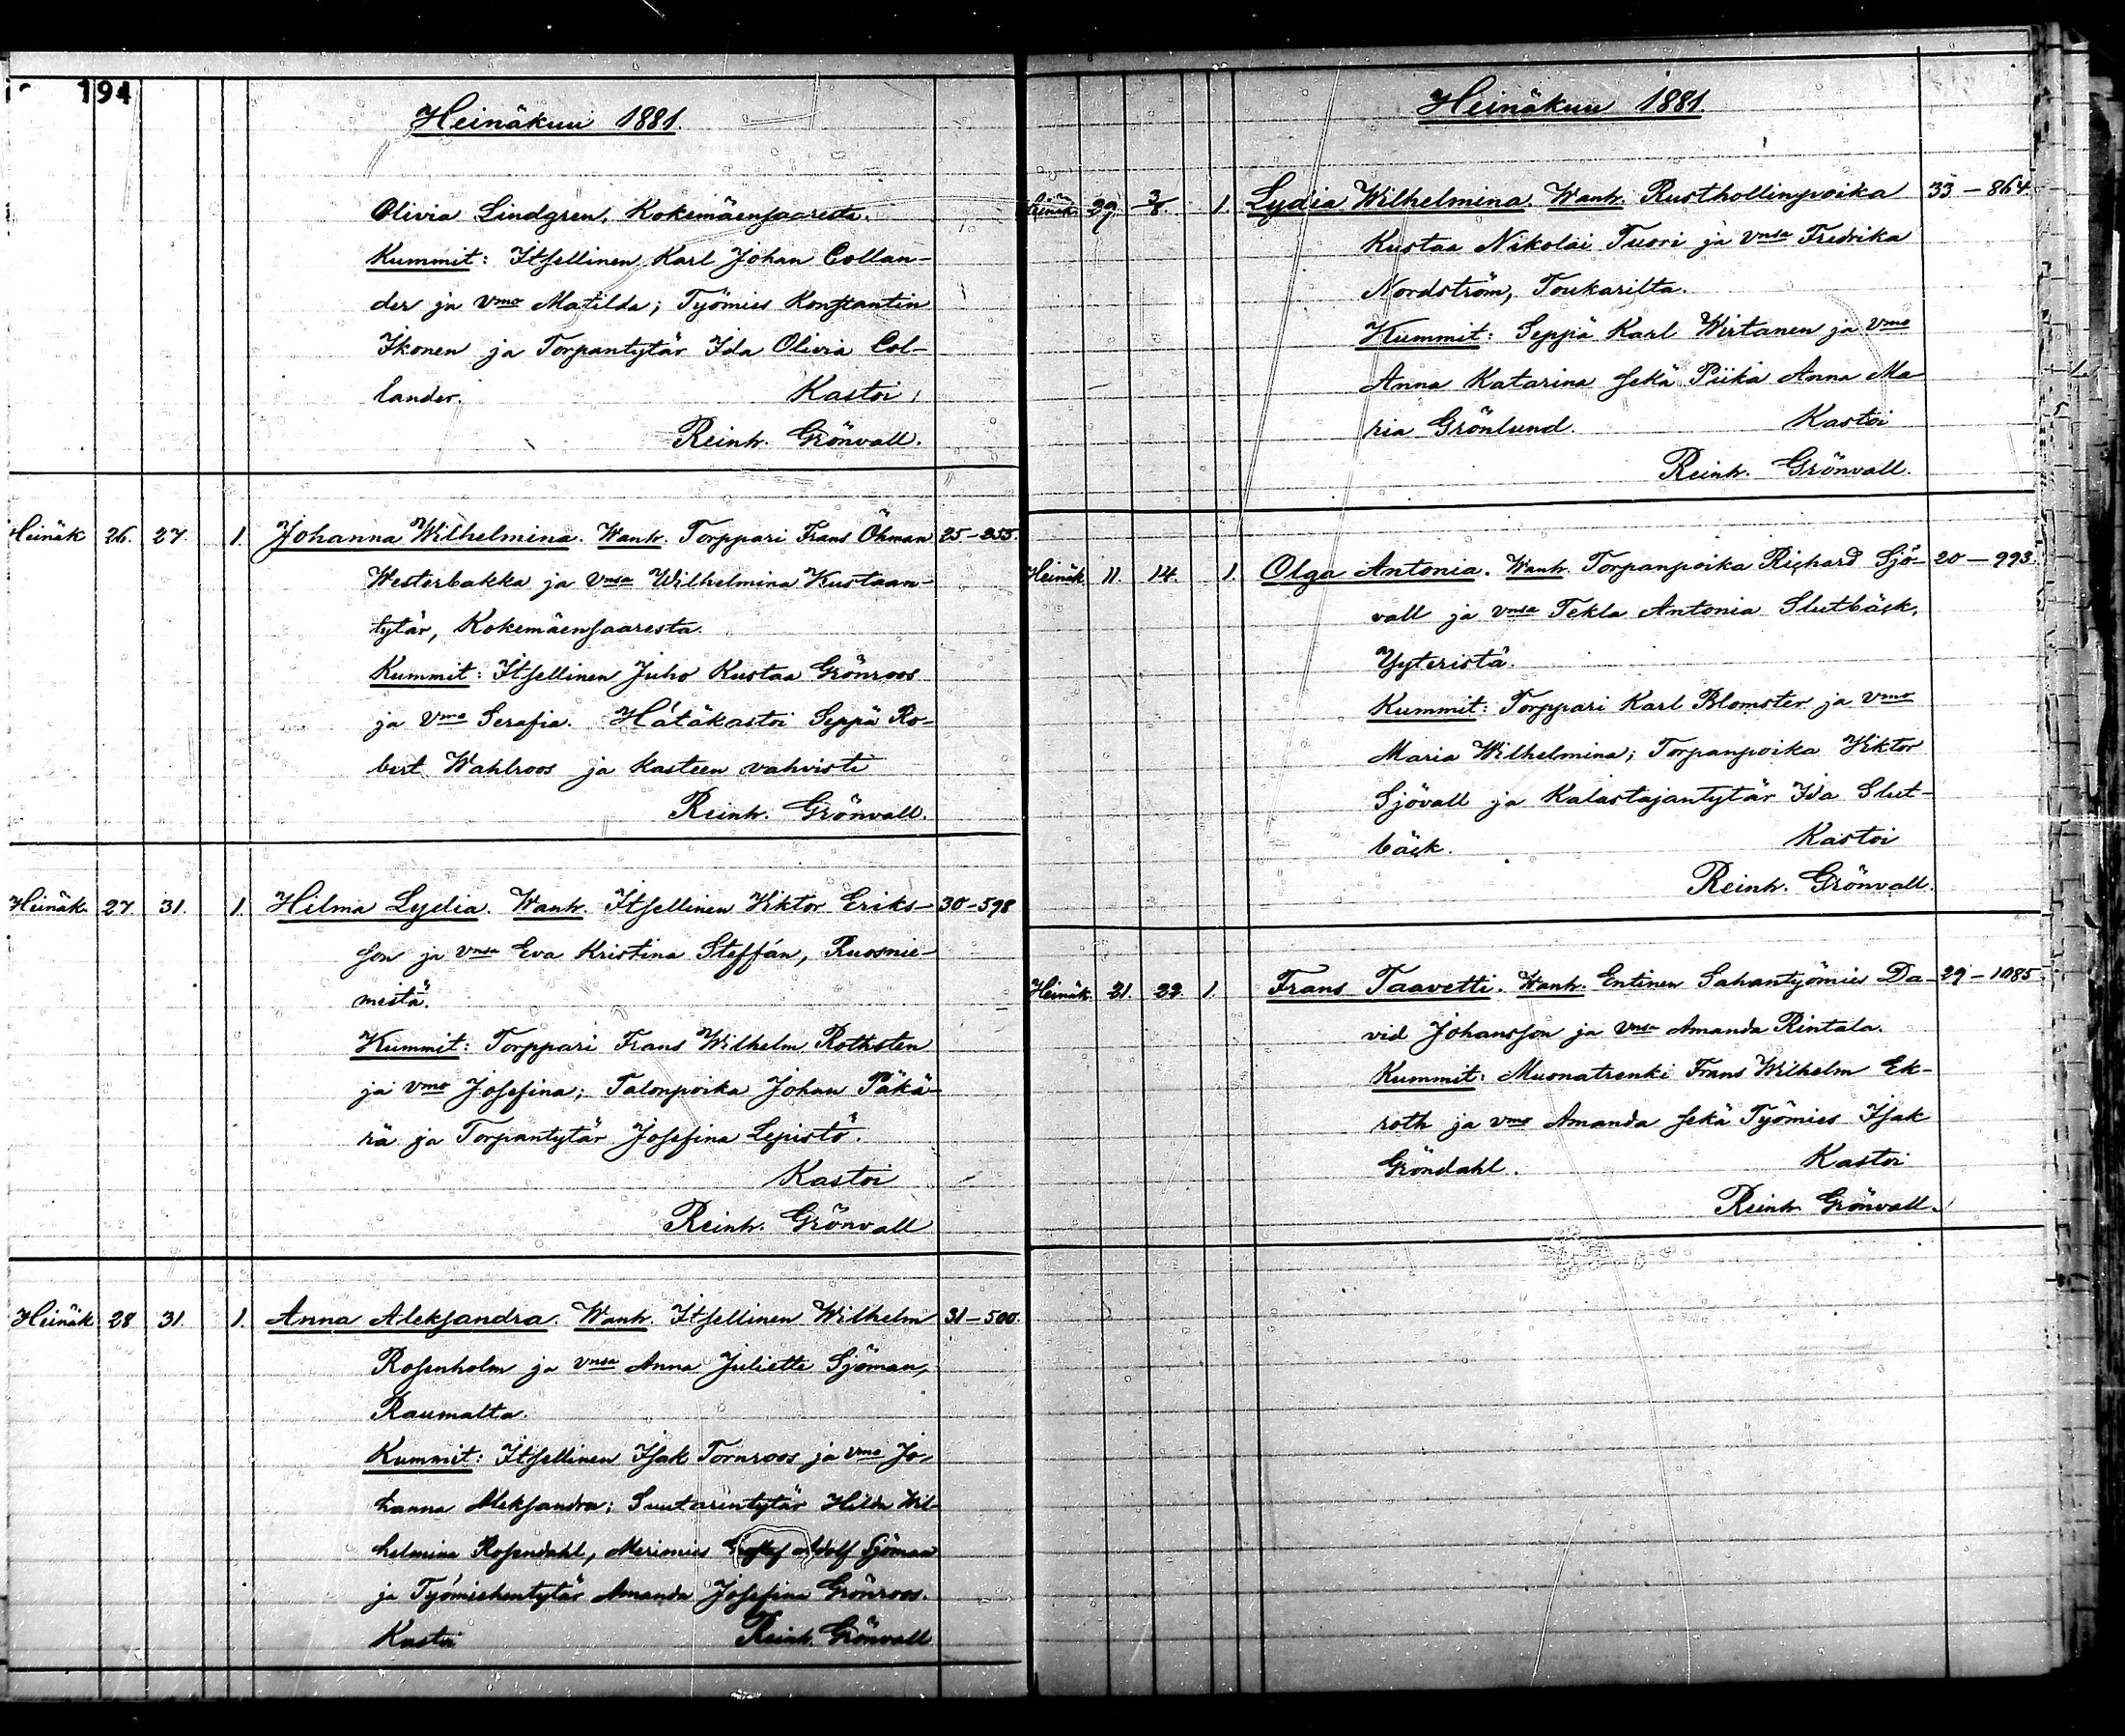 194
Heinäkuu 1881.
Olivia Lindgren, Kokemäensaaresta.
Kummit: Itsellinen Karl Johan Collan-
der ja vmo Matilda; Työmies Konstantin
Ikonen ja Torpantytär Ida Olivia Col-
lander. Kastoi
Reinh. Grönvall.
Heinäk 26. 27. 1. Johanna Wilhelmina. Wanh. Torppari Frans Öhman 25-255.
Westerbakka ja vnsa Wilhelmina Kustaan-
tytär, Kokemäensaaresta.
Kummit: Itsellinen Juho Kustaa Grönroos
ja vmo Serafia. Hätäkastoi Seppä Ro-
bert Wahlroos ja kasteen vahvisti
Reinh. Grönvall.
Heinäk. 27. 31. 1. Hilma Lydia. Wanh. Itsellinen Viktor Eriks- 30-598
son ja vnsa Eva Kristina Steffán, Ruosnie-
mestä.
Kummit: Torppari Frans Wilhelm Rothsten
ja vmo Josefina; Talonpoika Johan Päkä-
rä ja Torpantytär Josefina Lepistö.
Kastoi
Reinh. Grönvall
Heinäk 28 31. 1. Anna Aleksandra. Wanh. Itsellinen Wilhelm 31-500.
Rosenholm ja vnsa Anna Juliette Sjöman,
Raumalta.
Kummit: Itsellinen Isak Tornroos ja vmo Jo-
hanna Aleksandra; Suutarintytär Hilda Wil-
helmina Rosendahl, Merimies Adolf Sjöman
ja Työmiehentytär Amanda Josefina Grönroos.
Kastoi Reinh. Grönvall
Heinäkuu 1881.
Heinäk 29. 3/8. 1. Lydia Wilhelmina. Wanh. Rusthollinpoika 33-864
Kustaa Nikolai Tuori ja vnsa Fredrika
Nordström, Toukarilta.
Kummit: Seppä Karl Wirtanen ja vmo
Anna Katarina sekä Piika Anna Ma-
ria Grönlund. Kastoi
Reinh. Grönvall.
Heinäk 11. 14. 1. Olga Antonia. Wanh. Torpanpoika Richard Sjö- 20-993.
vall ja vnsa Tekla Antonia Slutbäck,
Yyteristä.
Kummit: Torppari Karl Blomster ja vmo
Maria Wilhelmina; Torpanpoika Viktor
Sjövall ja Kalastajantytär Ida Slut-
bäck. Kastoi
Reinh. Grönvall.
Heinäk. 21. 22. 1. Frans Taavetti. Wanh. Entinen Sahantyömies Da- 29-1085
vid Johansson ja vnsa Amanda Rintala.
Kummit: Muonatrenki Frans Wilhelm Ek-
roth ja vmo Amanda sekä Työmies Isak
Gröndahl. Kastoi
Reinh. Grönvall.